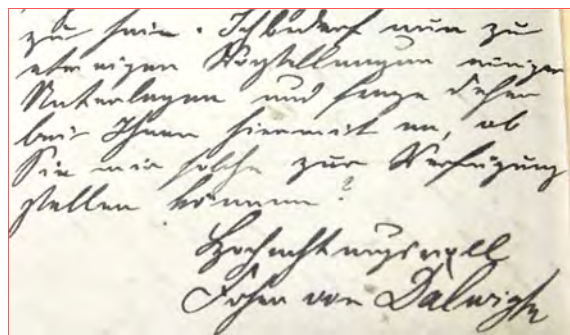 zu sein. Ich bedarf nun zu
etwaigen Vorstellungen einiger
Unterlagen und frage daher
bei Ihnen hiermit an, ob
Sie mir solche zur Verfügung
stellen können?
Hochachtungsvoll
von Dalwigk